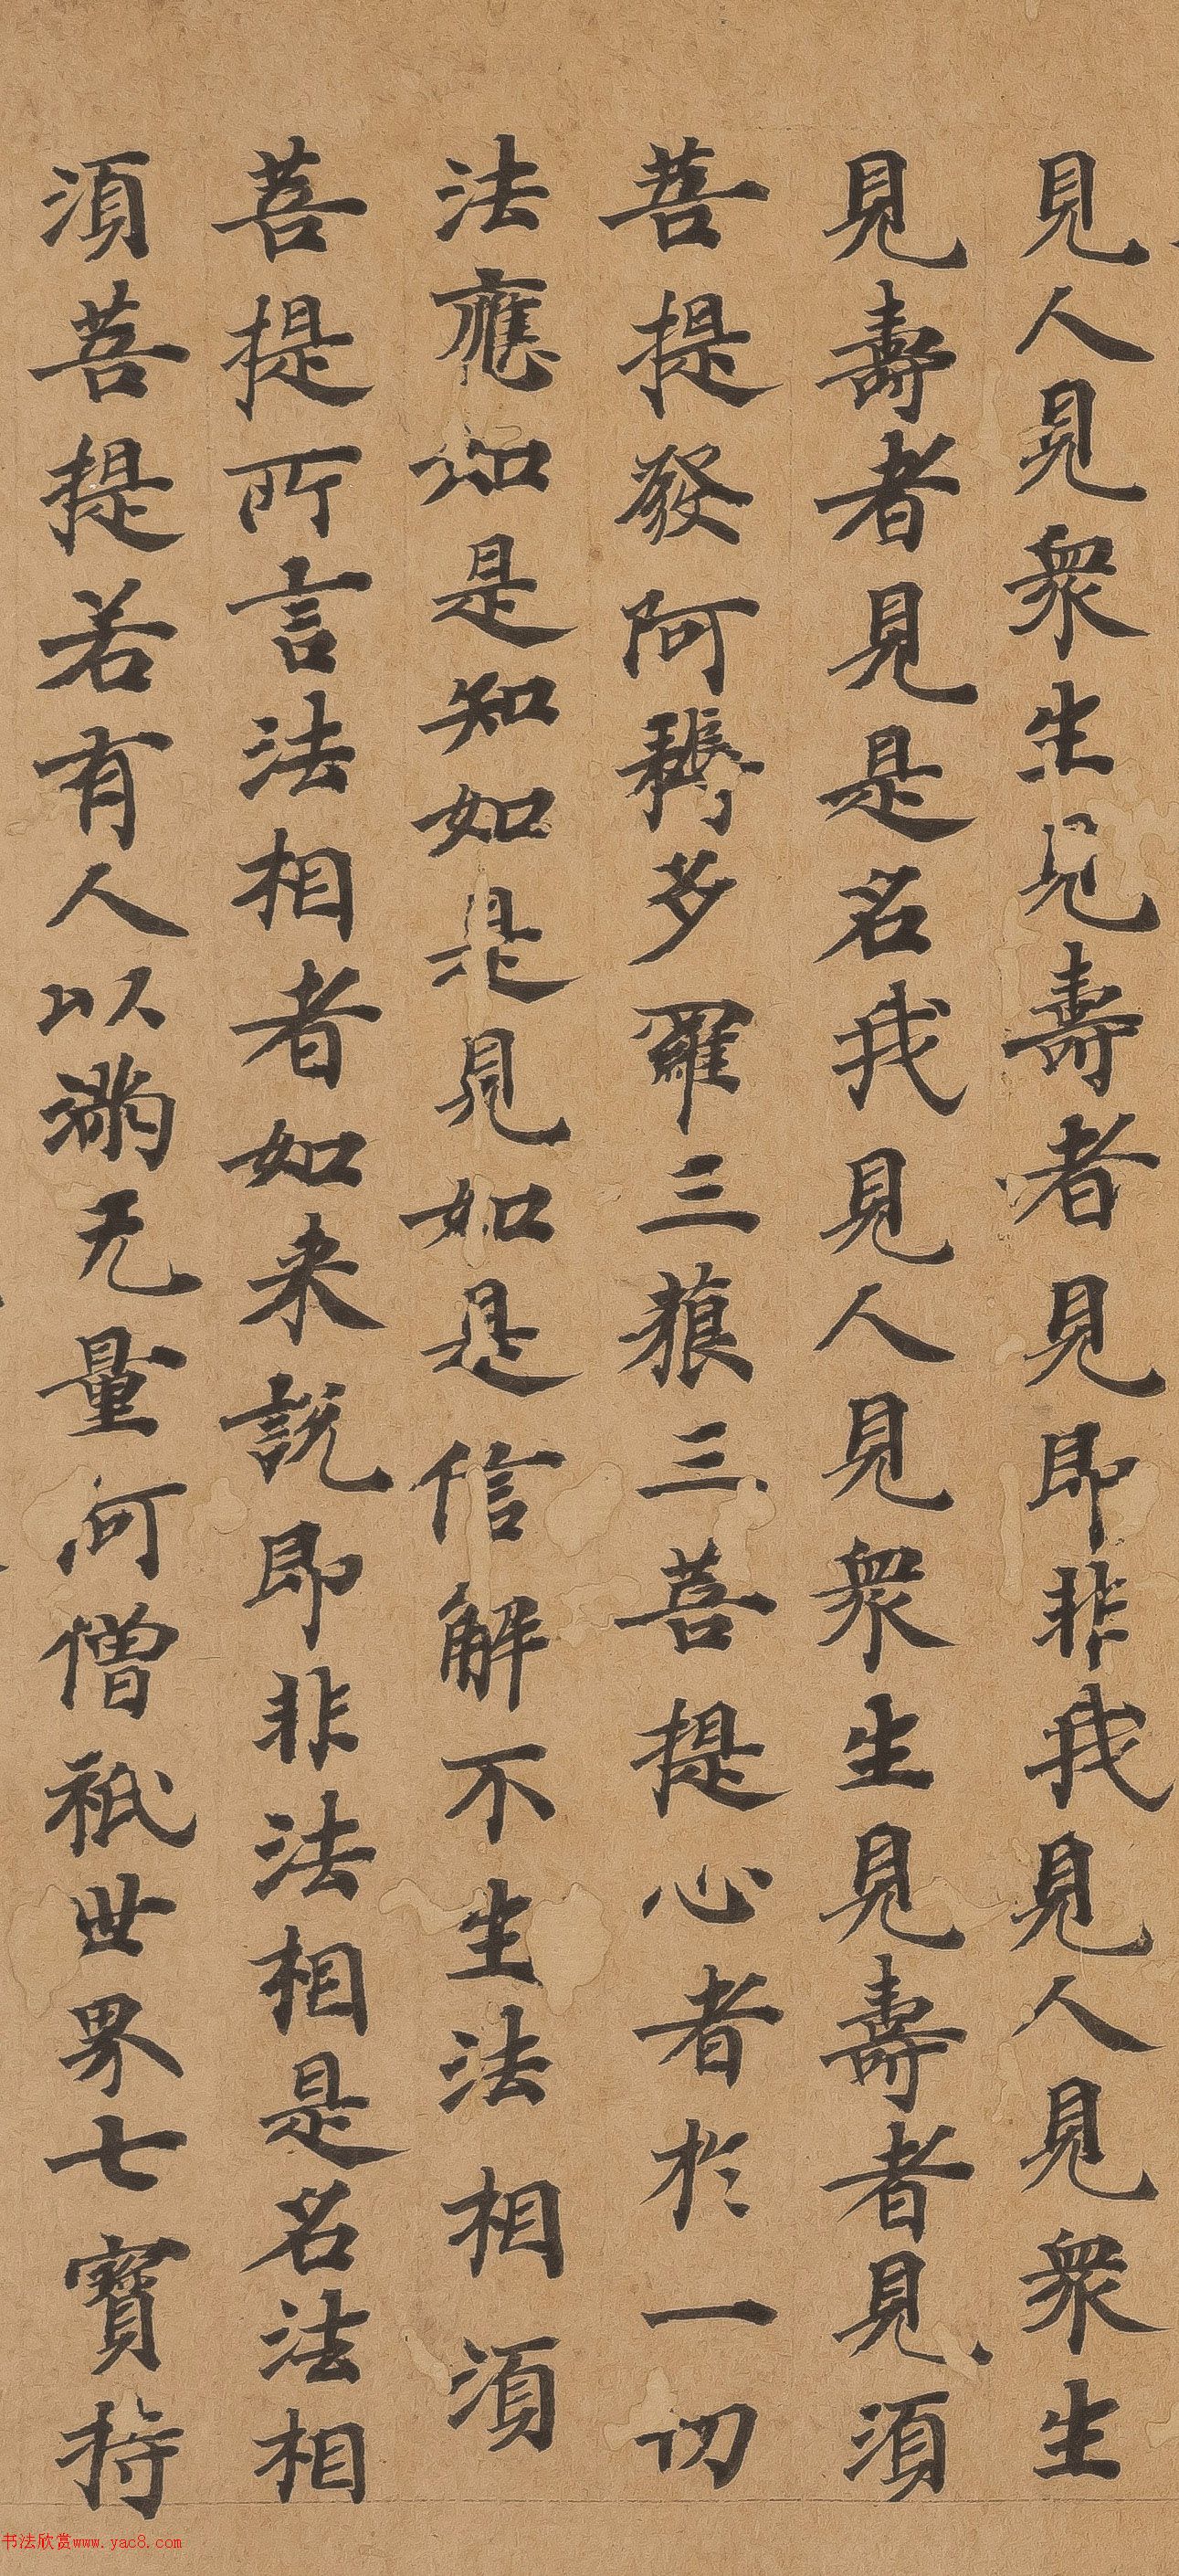 見人見衆生見壽者見即非我見人見衆生
見壽者見是名我見人見衆生見壽者見須
菩提發阿耨多羅三藐三菩提心者於一切
法應如是知如是見如是信解不生法相須
菩提所言法相者如来說即非法相是名法相
須菩提若有人以滿无量阿僧祇世界七寶持
书法欣赏www.yac8.com